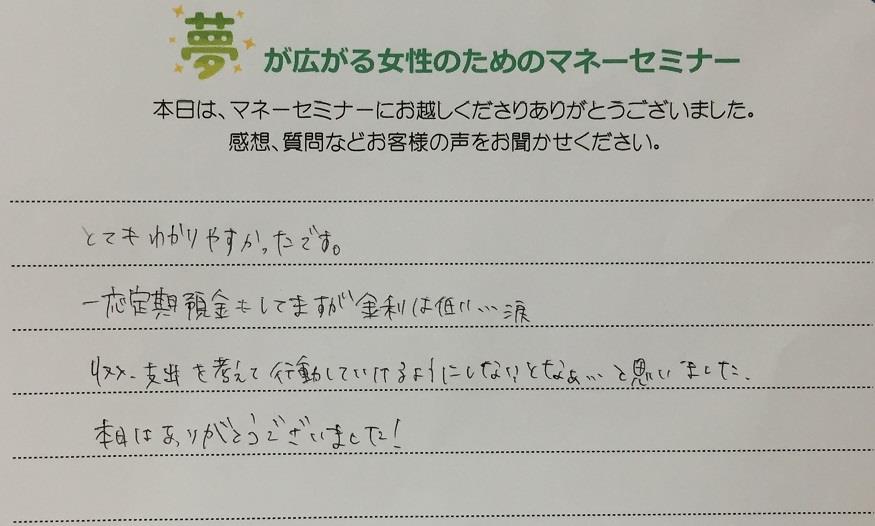 夢が広がる女性のためのマネーセミナー
本日は、マネーセミナーにお越しくださりありがとうございました。
感想、質問などお客様の声をお聞かせください。
とてもわかりやすかったです。
一応定期預金もしてますが金利は低い…涙
収入・支出を考えて行動していけるようにしないとなぁ…と思いました。
本日はありがとうございました！